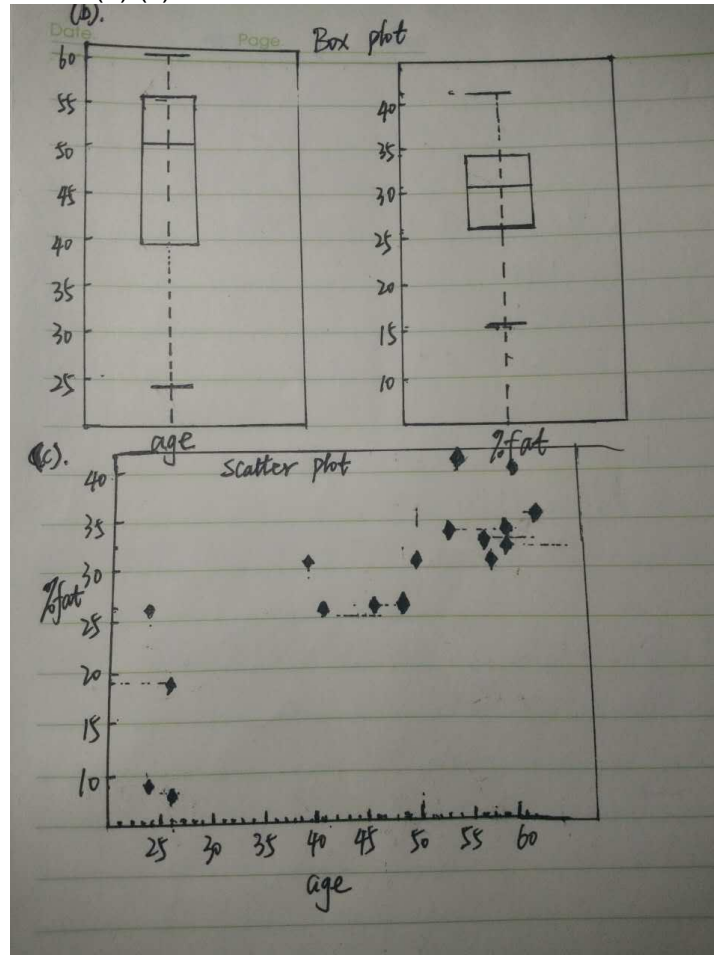 (b).
Date
Page
Box plot
60
55
50
45
40
35
30
25
age
40
35
30
25
20
15
10
%fat
(c).
Scatter plot
40
35
30
25
20
15
10
%fat
25 30 35 40 45 50 55 60
age